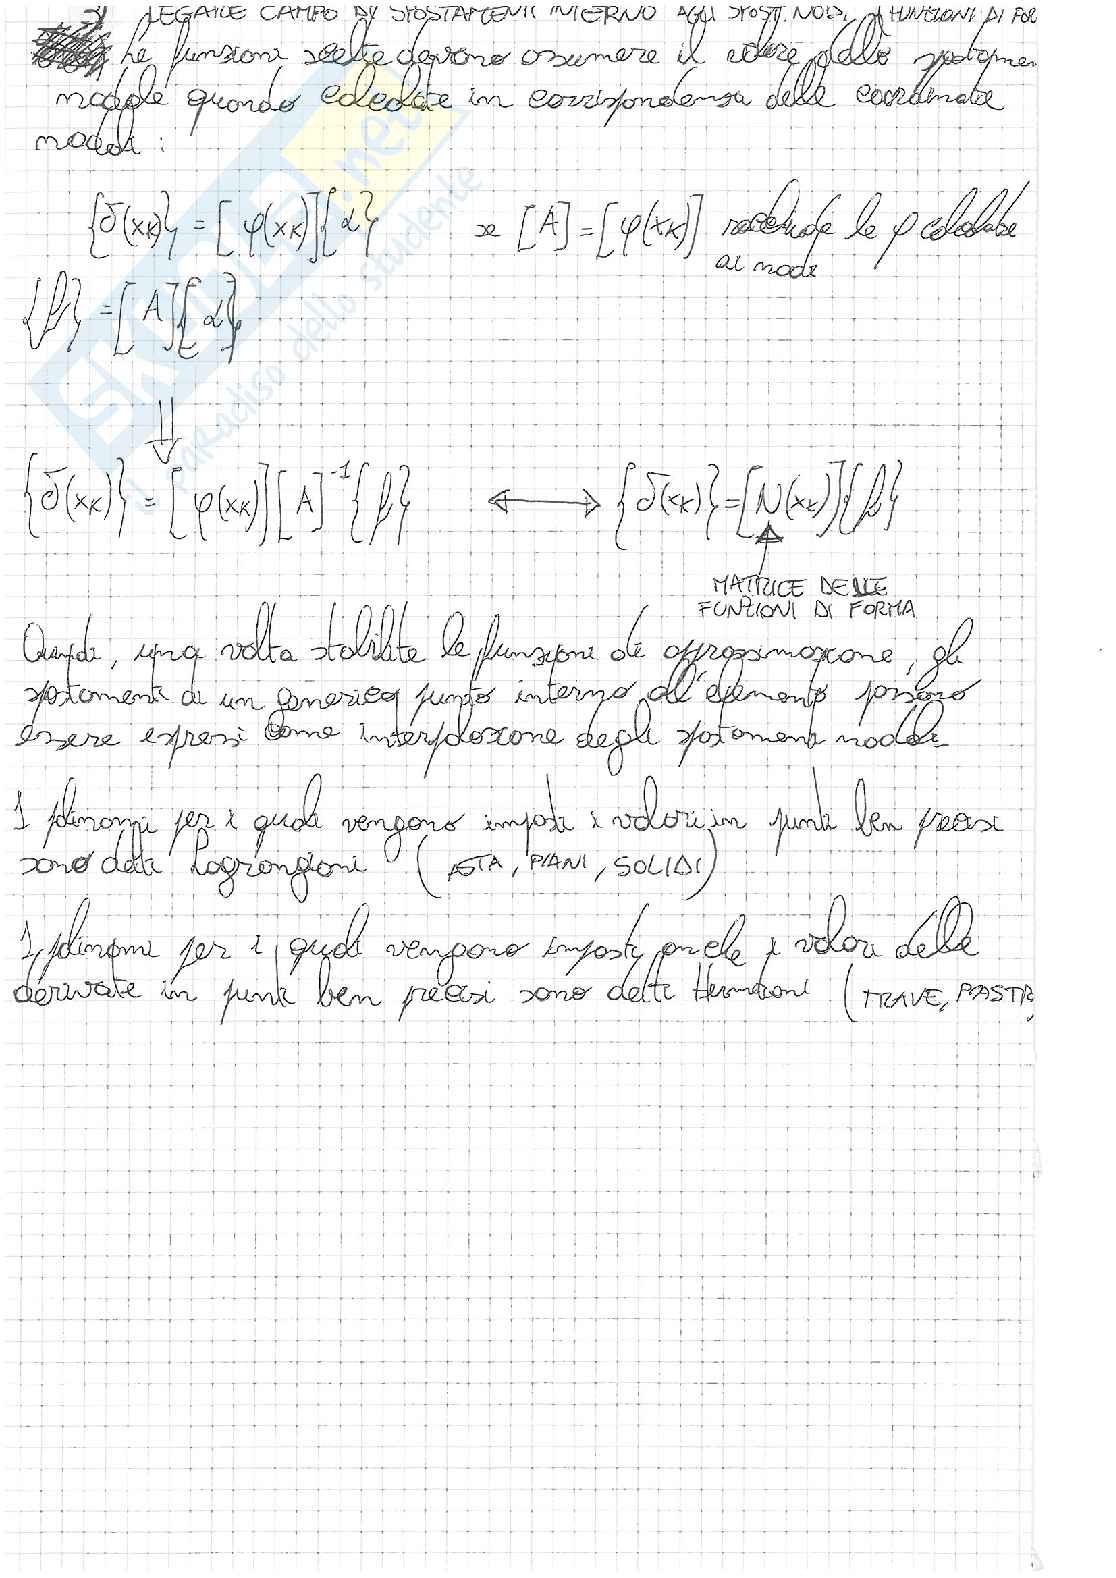 3) LEGARE CAMPO DI SPOSTAMENTI INTERNO AGLI SPOST. NODI, FUNZIONI DI FOR
Le funzioni scelte devono assumere il valore dello spostamen
nodale quando calcolate in corrispondenza delle coordinate
nodali :
{δ(xK)} = [φ(xK)]{α} se [A] = [φ(xK)] racchiude le φ calcolate
ai nodi
{f} = [A]{α}
⇓
{δ(xK)} = [φ(xK)][A]⁻¹{f} ⟷ {δ(xK)} = [N(xK)]{f}
MATRICE DELLE
FUNZIONI DI FORMA
Quindi, una volta stabilite le funzioni di approssimazione, gli
spostamenti di un generico punto interno all'elemento possono
essere espressi come interpolazione degli spostamenti nodali
I polinomi per i quali vengono imposti i valori in punti ben precisi
sono detti Lagrangiani (ASTA, PIANI, SOLIDI)
I polinomi per i quali vengono imposti anche i valori delle
derivate in punti ben precisi sono detti Hermitiani (TRAVE, PIASTR
SKUOLA.net
il paradiso dello studente